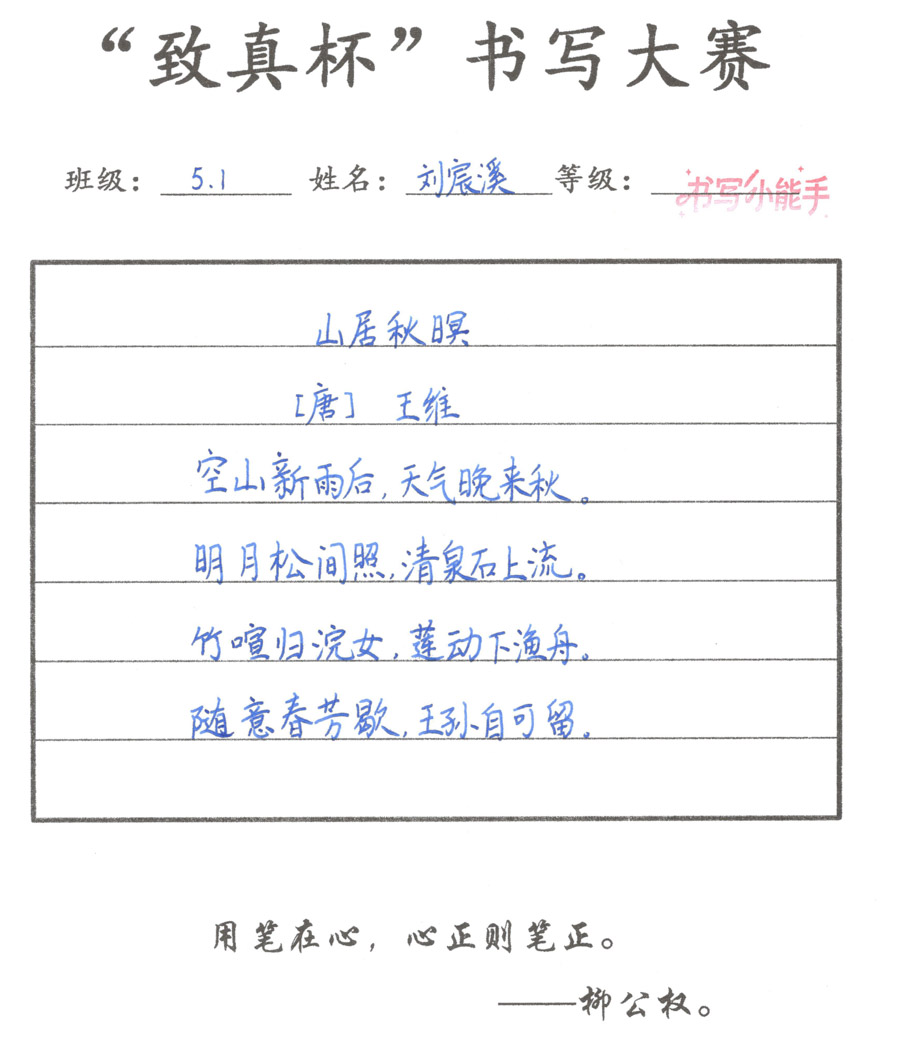 “致真杯”书写大赛
班级： 5.1 姓名： 刘宸溪 等级： 书写小能手
山居秋暝
[唐] 王维
空山新雨后,天气晚来秋。
明月松间照,清泉石上流。
竹喧归浣女,莲动下渔舟。
随意春芳歇,王孙自可留。
用笔在心，心正则笔正。
——柳公权。